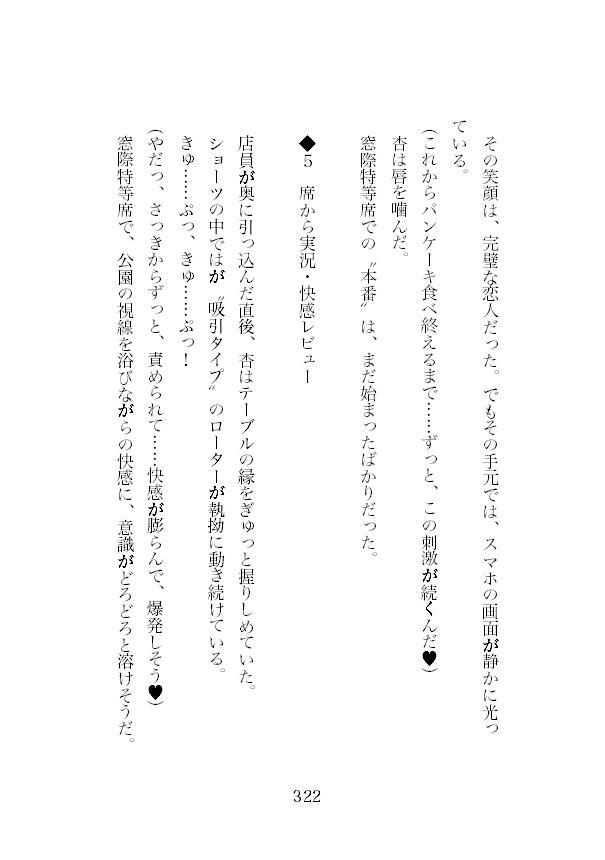 その笑顔は、完璧な恋人だった。でもその手元では、スマホの画面が静かに光っ
ている。
(これからパンケーキ食べ終えるまで……ずっと、この刺激が続くんだ♥)
杏は唇を噛んだ。
窓際特等席での〝本番〟は、まだ始まったばかりだった。
◆5　席から実況・快感レビュー
店員が奥に引っ込んだ直後、杏はテーブルの縁をぎゅっと握りしめていた。
ショーツの中ではが〝吸引タイプ〟のローターが執拗に動き続けている。
きゅ……ぷっ、きゅ……ぷっ！
(やだっ、さっきからずっと、責められて……快感が膨らんで、爆発しそう♥)
窓際特等席で、公園の視線を浴びながらの快感に、意識がどろどろと溶けそうだ。
322